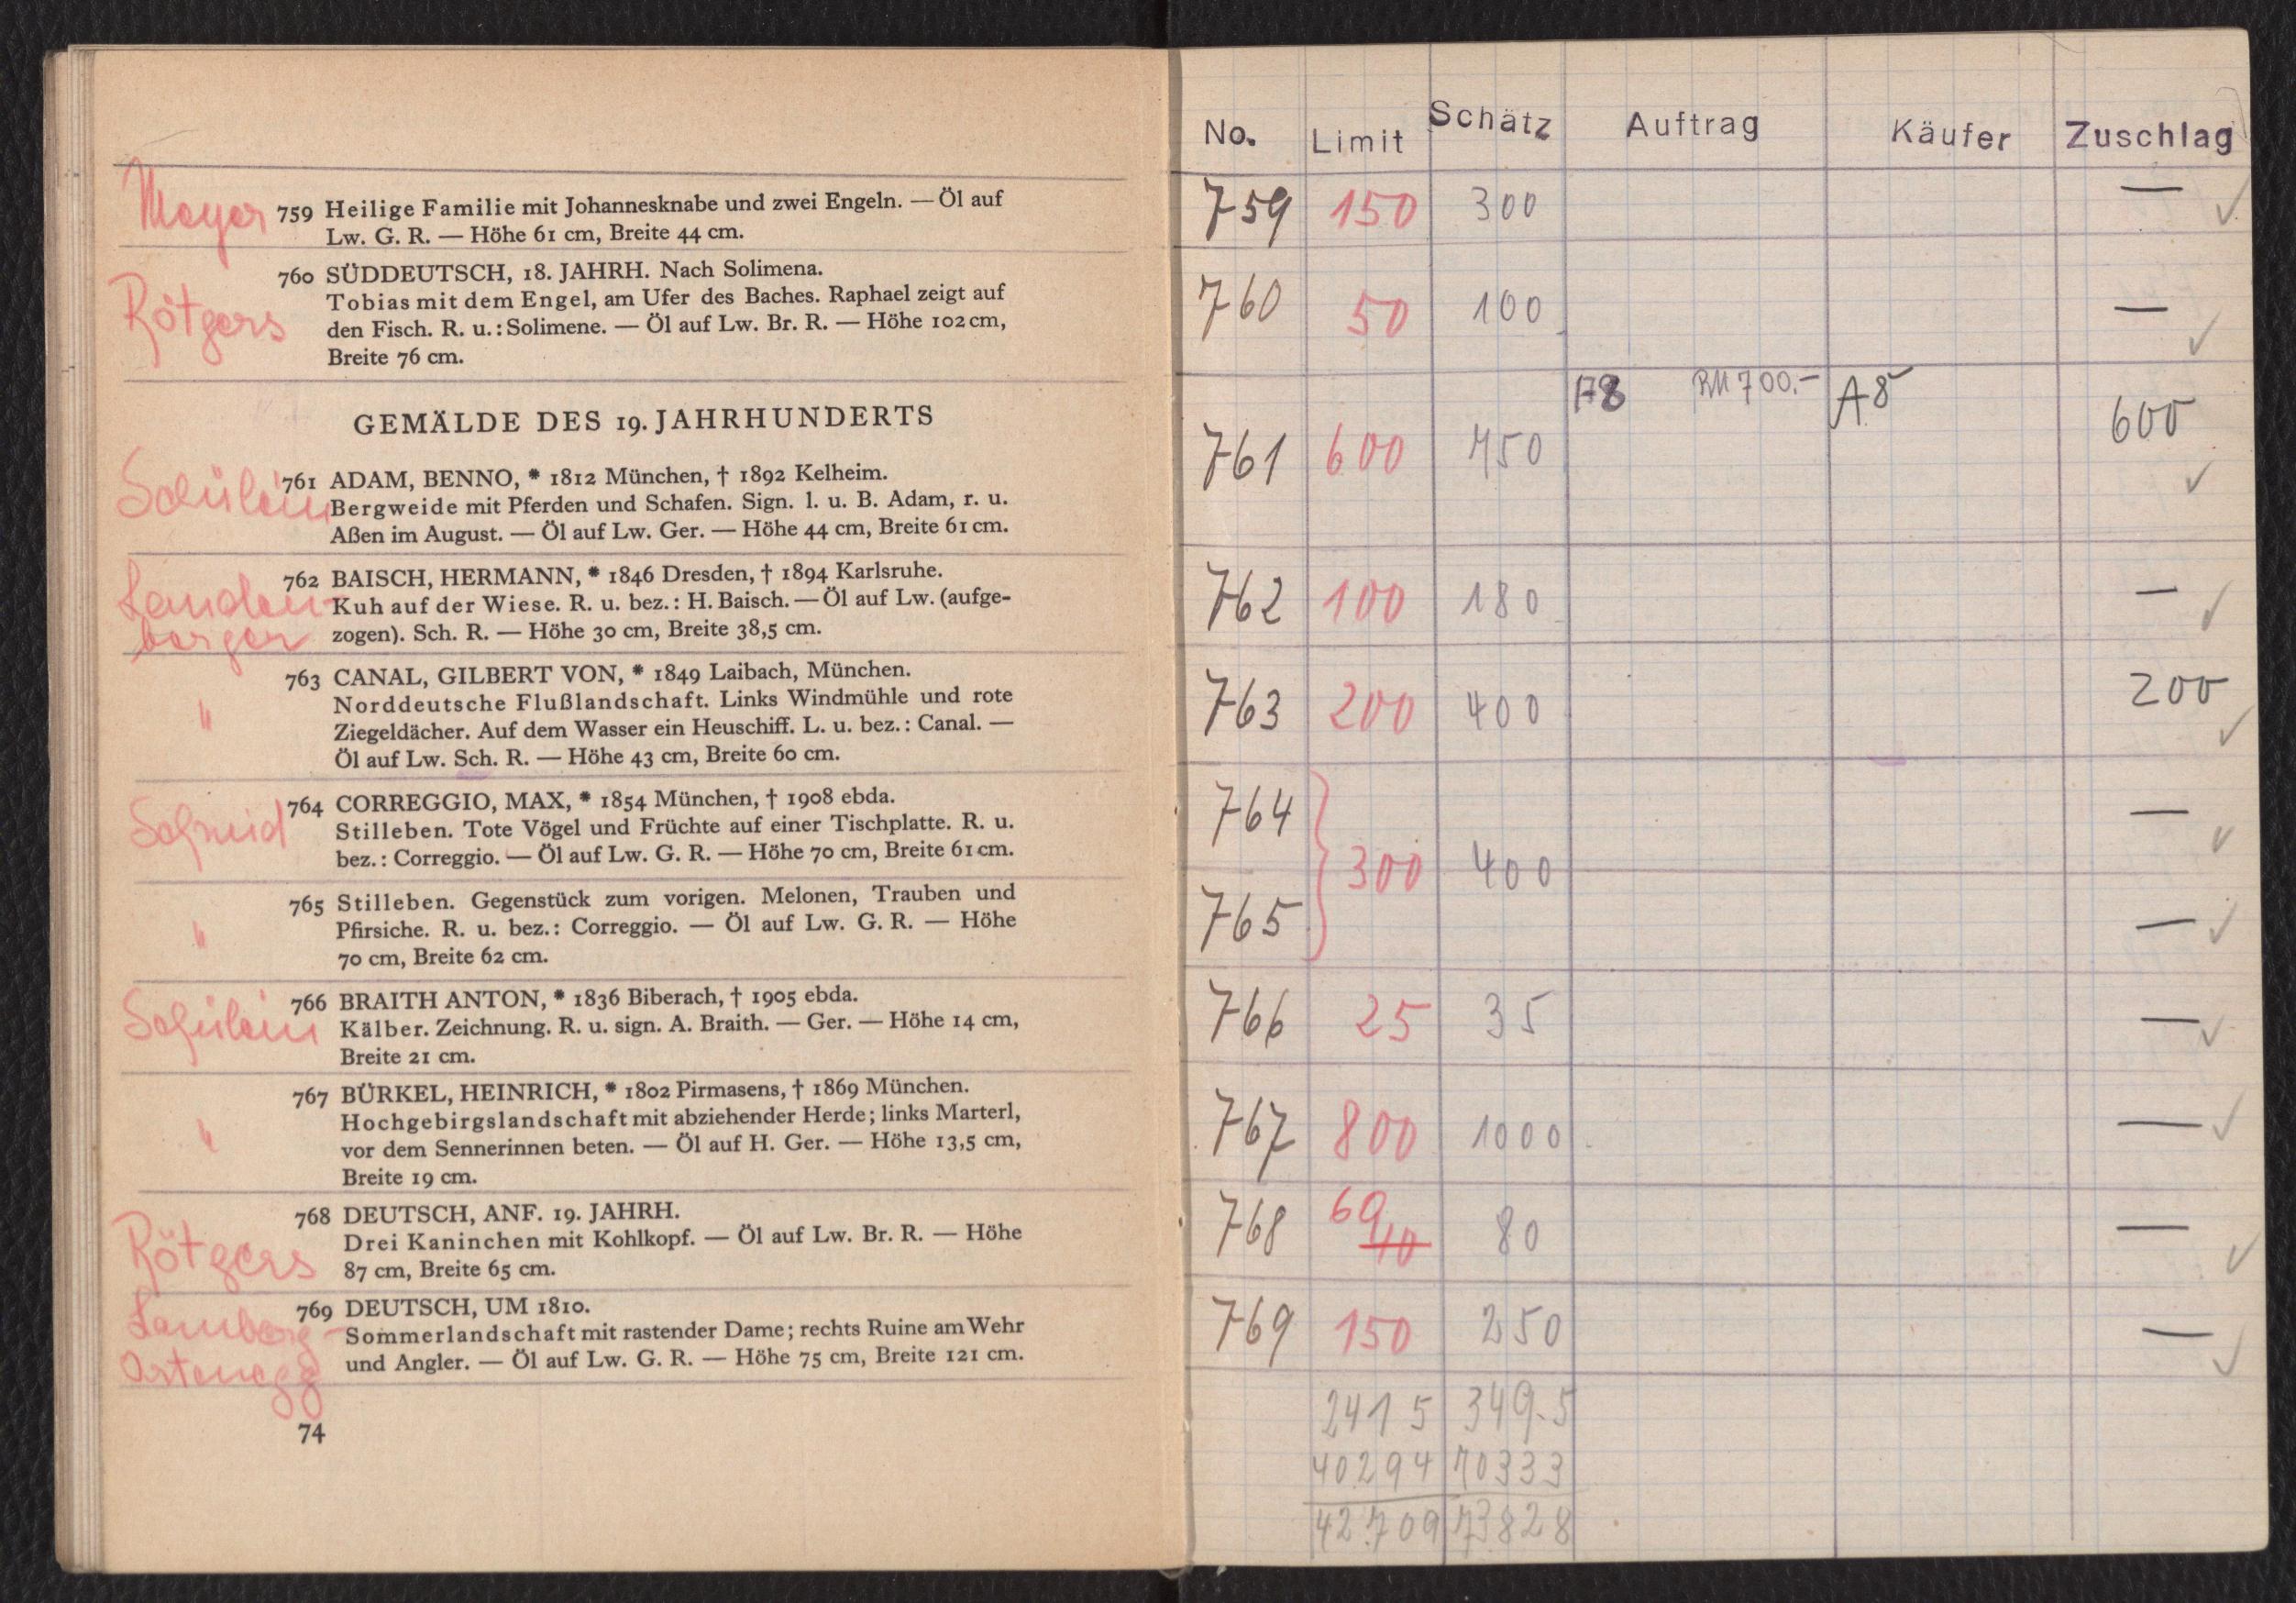 Meyer
759 Heilige Familie mit Johannesknabe und zwei Engeln. — Öl auf
Lw. G. R. — Höhe 61 cm, Breite 44 cm.
Rötgers
760 SÜDDEUTSCH, 18. JAHRH. Nach Solimena.
Tobias mit dem Engel, am Ufer des Baches. Raphael zeigt auf
den Fisch. R. u.: Solimene. — Öl auf Lw. Br. R. — Höhe 102 cm,
Breite 76 cm.
GEMÄLDE DES 19. JAHRHUNDERTS
Schülein
761 ADAM, BENNO, * 1812 München, † 1892 Kelheim.
Bergweide mit Pferden und Schafen. Sign. l. u. B. Adam, r. u.
Aßen im August. — Öl auf Lw. Ger. — Höhe 44 cm, Breite 61 cm.
Landen-
berger
762 BAISCH, HERMANN, * 1846 Dresden, † 1894 Karlsruhe.
Kuh auf der Wiese. R. u. bez.: H. Baisch. — Öl auf Lw. (aufge-
zogen). Sch. R. — Höhe 30 cm, Breite 38,5 cm.
"
763 CANAL, GILBERT VON, * 1849 Laibach, München.
Norddeutsche Flußlandschaft. Links Windmühle und rote
Ziegeldächer. Auf dem Wasser ein Heuschiff. L. u. bez.: Canal. —
Öl auf Lw. Sch. R. — Höhe 43 cm, Breite 60 cm.
Schmid
764 CORREGGIO, MAX, * 1854 München, † 1908 ebda.
Stilleben. Tote Vögel und Früchte auf einer Tischplatte. R. u.
bez.: Correggio. — Öl auf Lw. G. R. — Höhe 70 cm, Breite 61 cm.
"
765 Stilleben. Gegenstück zum vorigen. Melonen, Trauben und
Pfirsiche. R. u. bez.: Correggio. — Öl auf Lw. G. R. — Höhe
70 cm, Breite 62 cm.
Schülein
766 BRAITH ANTON, * 1836 Biberach, † 1905 ebda.
Kälber. Zeichnung. R. u. sign. A. Braith. — Ger. — Höhe 14 cm,
Breite 21 cm.
"
767 BÜRKEL, HEINRICH, * 1802 Pirmasens, † 1869 München.
Hochgebirgslandschaft mit abziehender Herde; links Marterl,
vor dem Sennerinnen beten. — Öl auf H. Ger. — Höhe 13,5 cm,
Breite 19 cm.
Rötgers
768 DEUTSCH, ANF. 19. JAHRH.
Drei Kaninchen mit Kohlkopf. — Öl auf Lw. Br. R. — Höhe
87 cm, Breite 65 cm.
Lamberg-
Ortenegg
769 DEUTSCH, UM 1810.
Sommerlandschaft mit rastender Dame; rechts Ruine am Wehr
und Angler. — Öl auf Lw. G. R. — Höhe 75 cm, Breite 121 cm.
74
No. Limit Schätz Auftrag Käufer Zuschlag
759 150 300 — ✓
760 50 100 — ✓
A8 RM 700.- A8
761 600 750 600 ✓
762 100 180 — ✓
763 200 400 200 ✓
764 — ✓
300 400
765 — ✓
766 25 35 — ✓
767 800 1000 — ✓
768 60 40 80 — ✓
769 150 250 — ✓
2415 3495
40294 70333
42709 73828